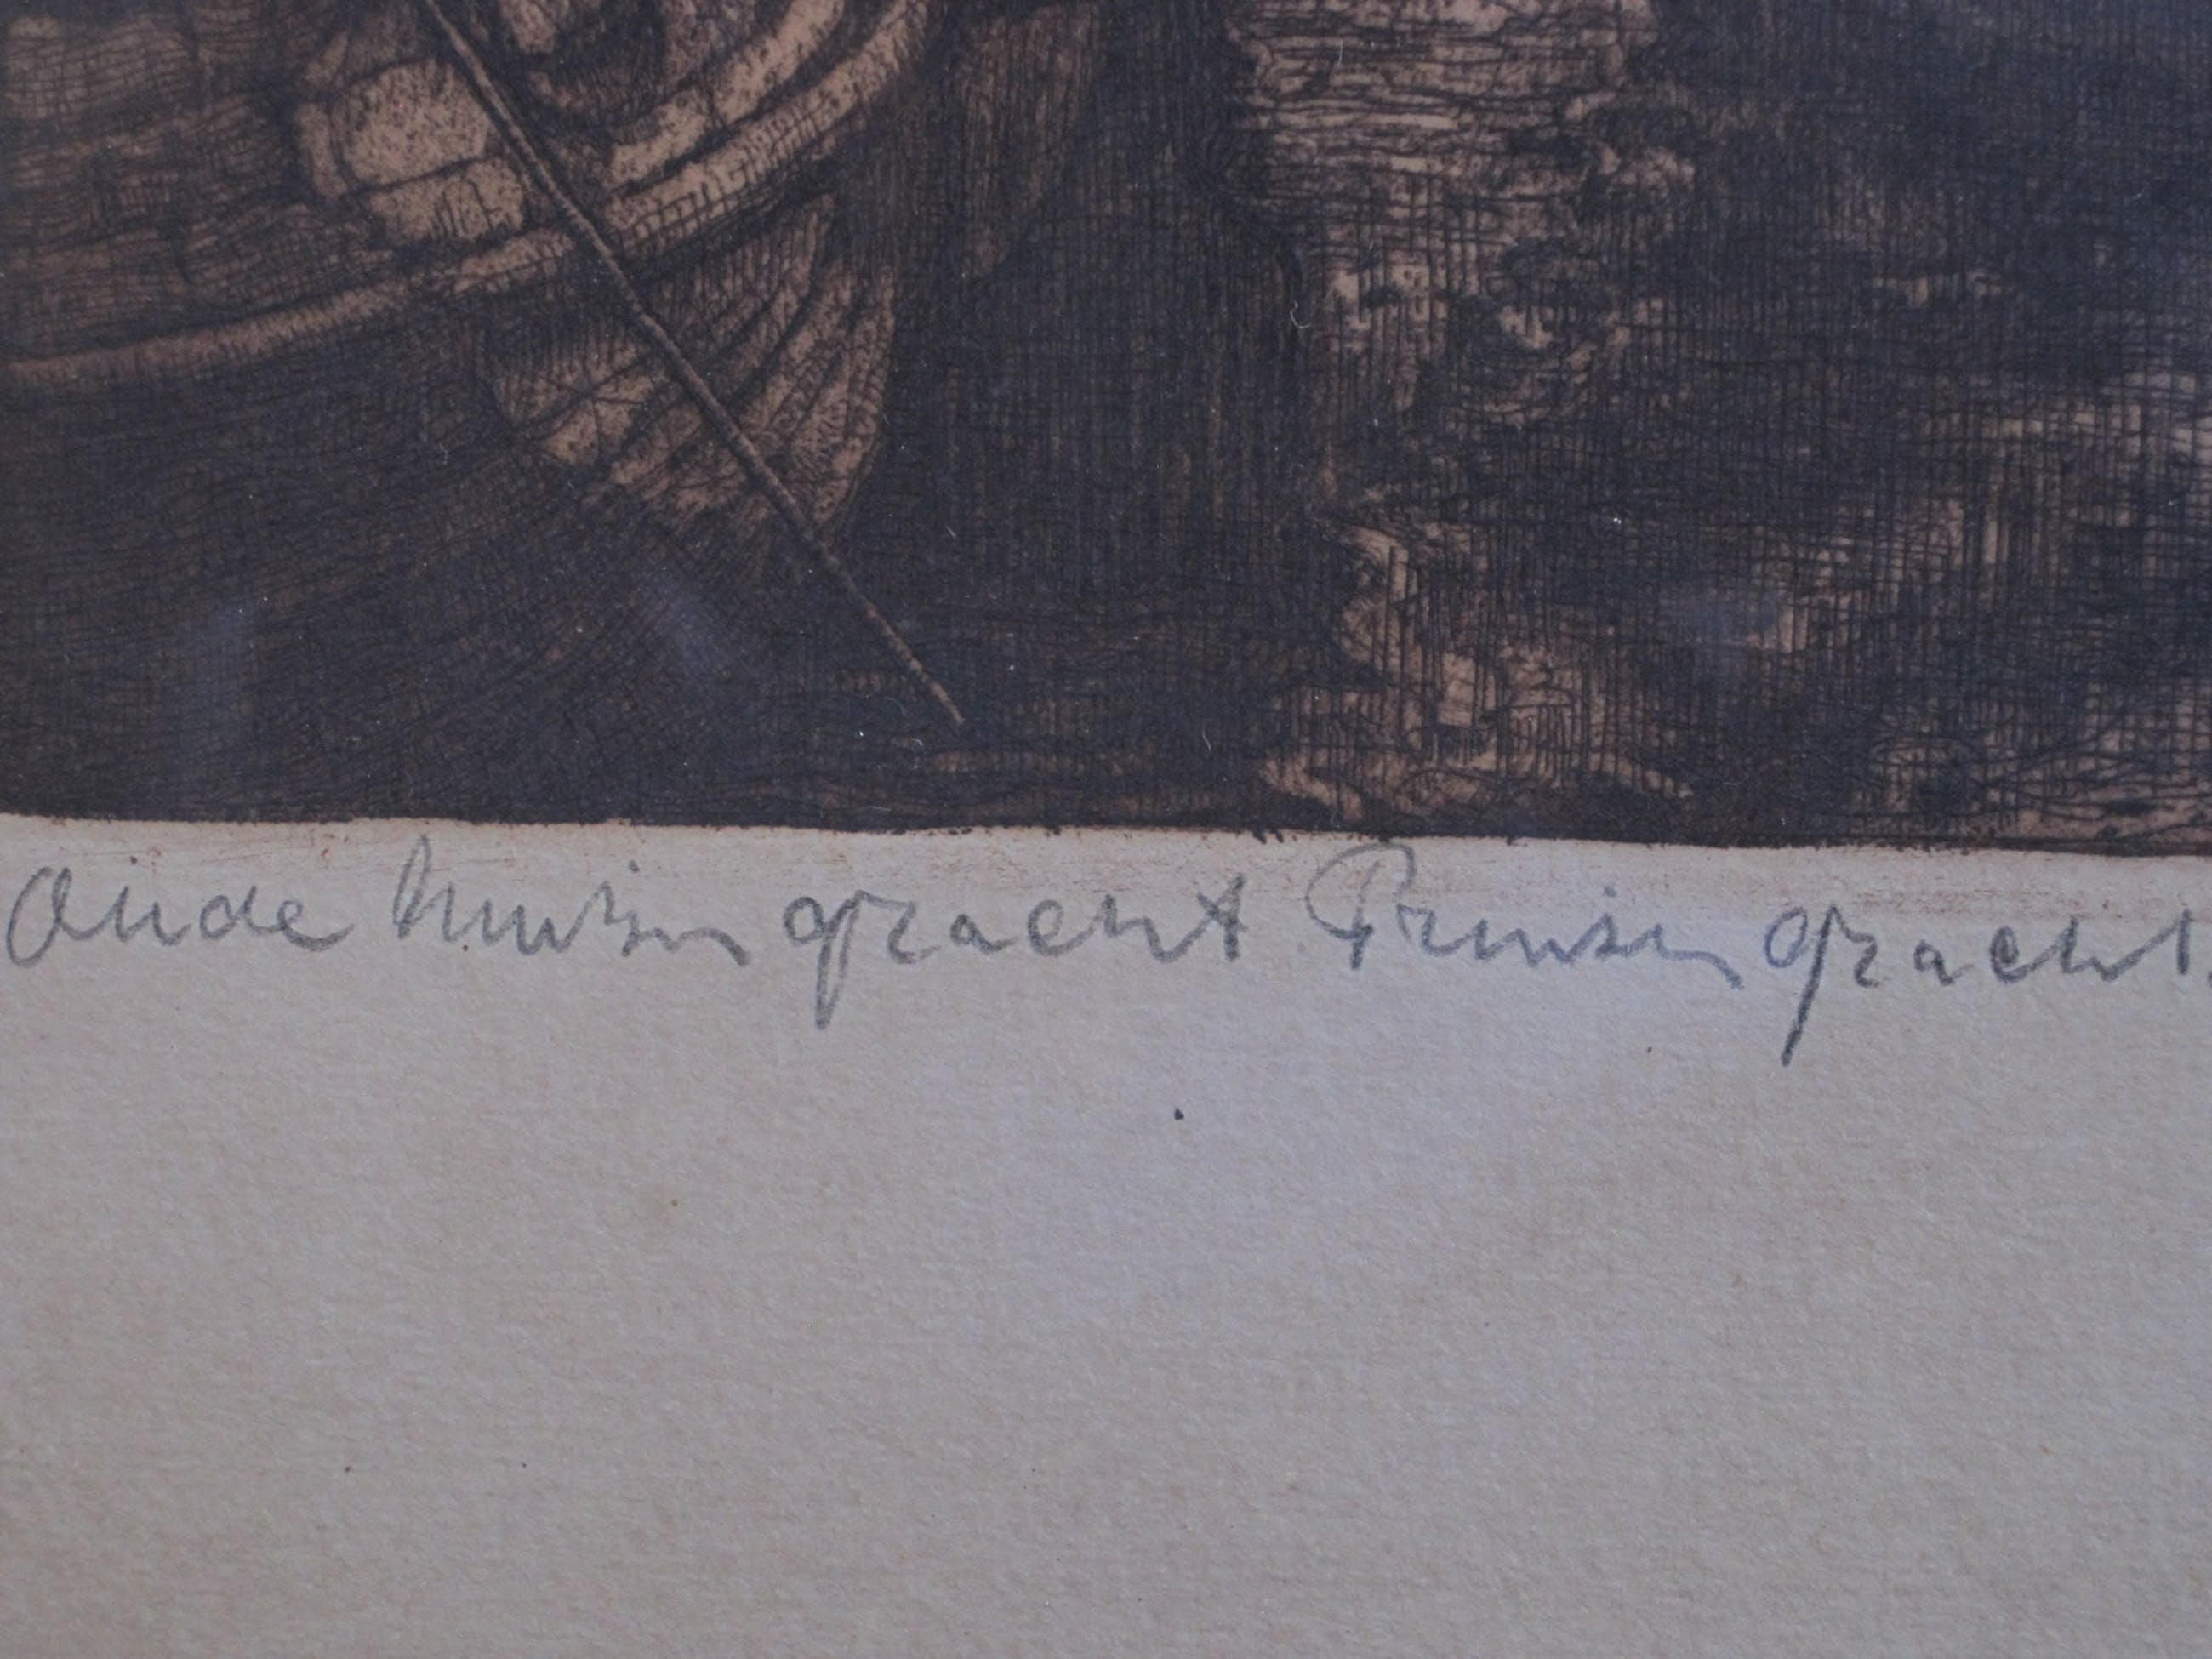 Oude huizen gracht Prinsen gracht.